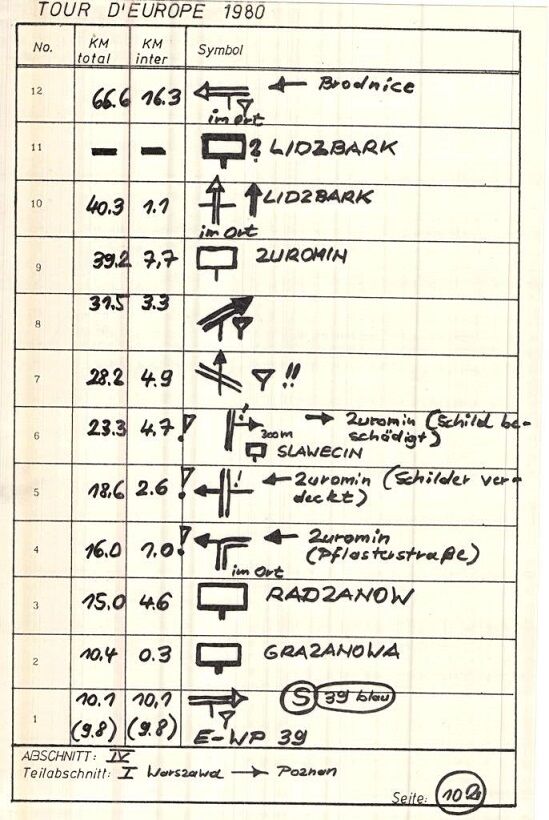 TOUR D'EUROPE 1980
No. KM total KM inter Symbol
12 66.6 16.3 Brodnice
im Ort
11 — — ? LIDZBARK
10 40.3 1.1 LIDZBARK
im Ort
9 39.2 7,7 ZUROMIN
8 31.5 3.3
7 28.2 4.9 !!
6 23.3 4.7 ! ! Zuromin (Schild be-
schädigt)
300m
SLAWECIN
5 18,6 2.6 ! ! Zuromin (Schilder ver-
deckt)
4 16.0 1.0 ! Zuromin
(Pflasterstraße)
im Ort
3 15.0 4.6 RADZANOW
2 10.4 0.3 GRAZANOWA
1 10.1 10,1 S 39 blau
(9.8) (9.8) E-WP 39
ABSCHNITT: IV
Teilabschnitt: I Warszawa → Poznan
Seite: 102